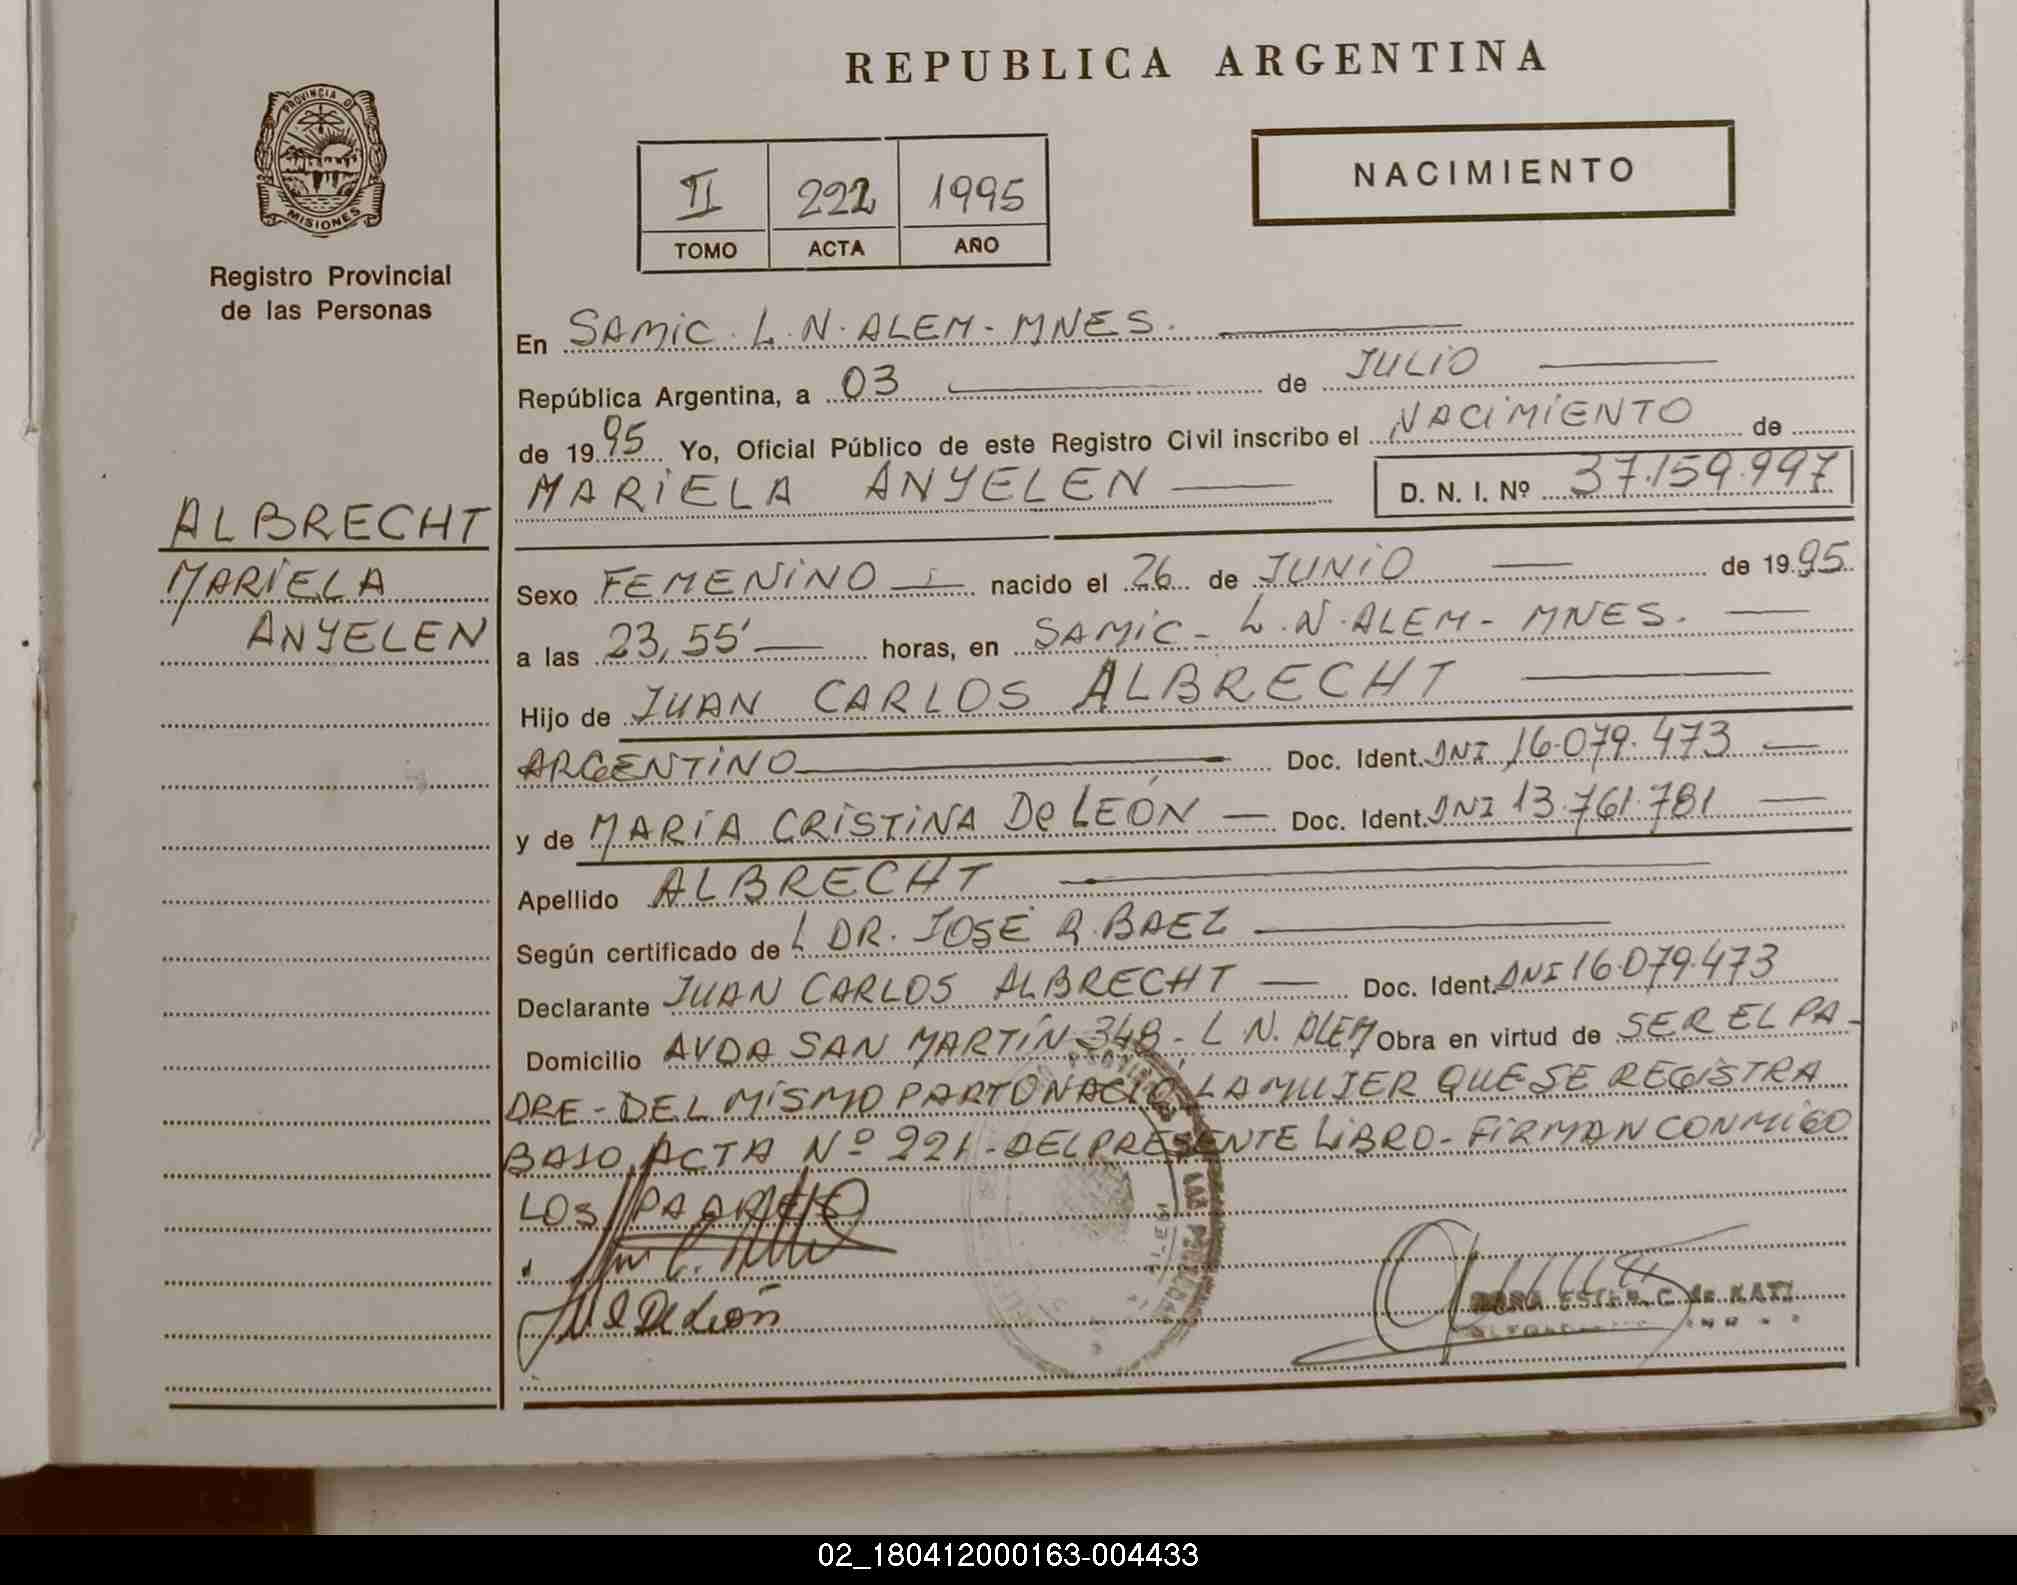 REPUBLICA ARGENTINA
PROVINCIA D
MISIONES
Registro Provincial
de las Personas
II 222 1995
TOMO ACTA AÑO
NACIMIENTO
ALBRECHT
MARIELA
ANYELEN
En SAMIC. L. N. ALEM - MNES.
República Argentina, a 03 de JULIO
de 1995 Yo, Oficial Público de este Registro Civil inscribo el NACIMIENTO de
MARIELA ANYELEN D. N. I. Nº 37.159.997
Sexo FEMENINO nacido el 26 de JUNIO de 1995
a las 23,55' horas, en SAMIC - L. N. ALEM - MNES.
Hijo de JUAN CARLOS ALBRECHT
ARGENTINO Doc. Ident. DNI 16.079.473
y de MARIA CRISTINA De LEÓN Doc. Ident. DNI 13.761.781
Apellido ALBRECHT
Según certificado de L DR. JOSE R. BAEZ
Declarante JUAN CARLOS ALBRECHT Doc. Ident. DNI 16.079.473
Domicilio AVDA SAN MARTÍN 348 - L N. ALEM Obra en virtud de SER EL PA-
DRE - DEL MISMO PARTO NACIÓ LA MUJER QUE SE REGISTRA
BAJO ACTA Nº 221 - DEL PRESENTE LIBRO - FIRMAN CONMIGO
LOS PADRES
De León
ESTER C. de KATZ
02_180412000163-004433